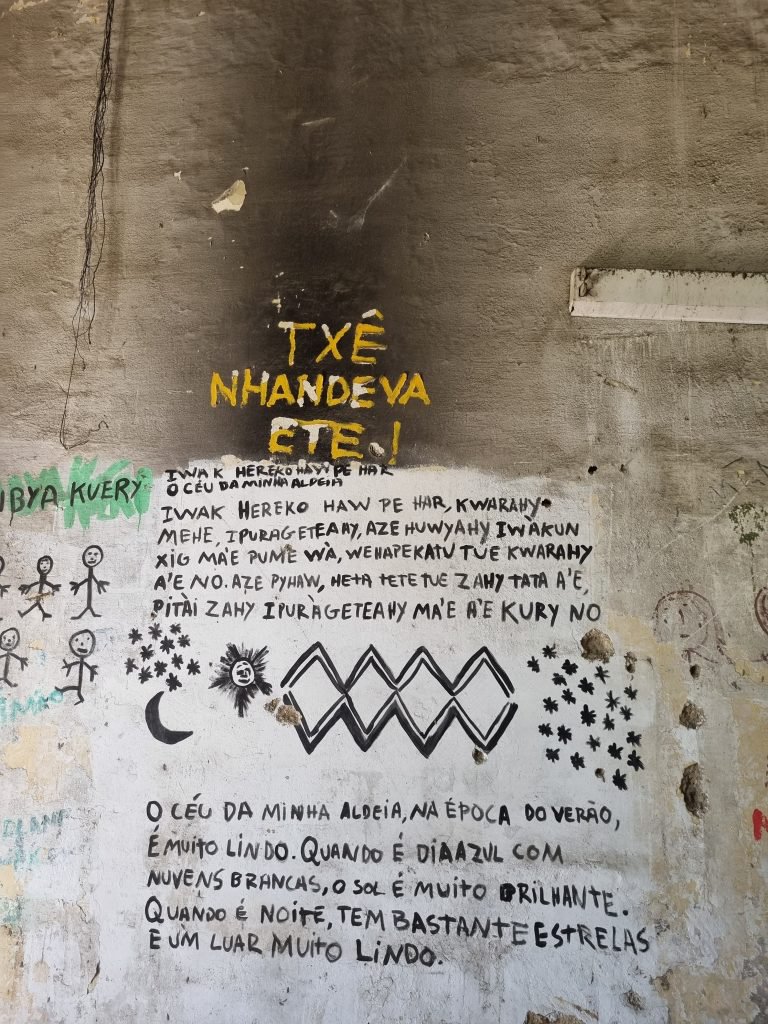 TXÊ
NHANDEVA
ETE.!
IWAK HEREKO HAW PE HAR
O CÉU DA MINHA ALDEIA
KUERY
IWAK HEREKO HAW PE HAR, KWARAHY
MEHE, IPURAGETEAHY, AZE HUWYAHY IWÀKUN
XIG MA'E PUME WÀ, WEHAPEKATU TUE KWARAHY
A'E NO. AZE PYHAW, HETA TETE TUE ZAHY TATA A'E,
PITÀI ZAHY IPURÀGETEAHY MA'E A'E KURY NO
O CÉU DA MINHA ALDEIA, NA ÉPOCA DO VERÃO,
É MUITO LINDO. QUANDO É DIA AZUL COM
NUVENS BRANCAS, O SOL É MUITO BRILHANTE.
QUANDO É NOITE, TEM BASTANTE ESTRELAS
E UM LUAR MUITO LINDO.